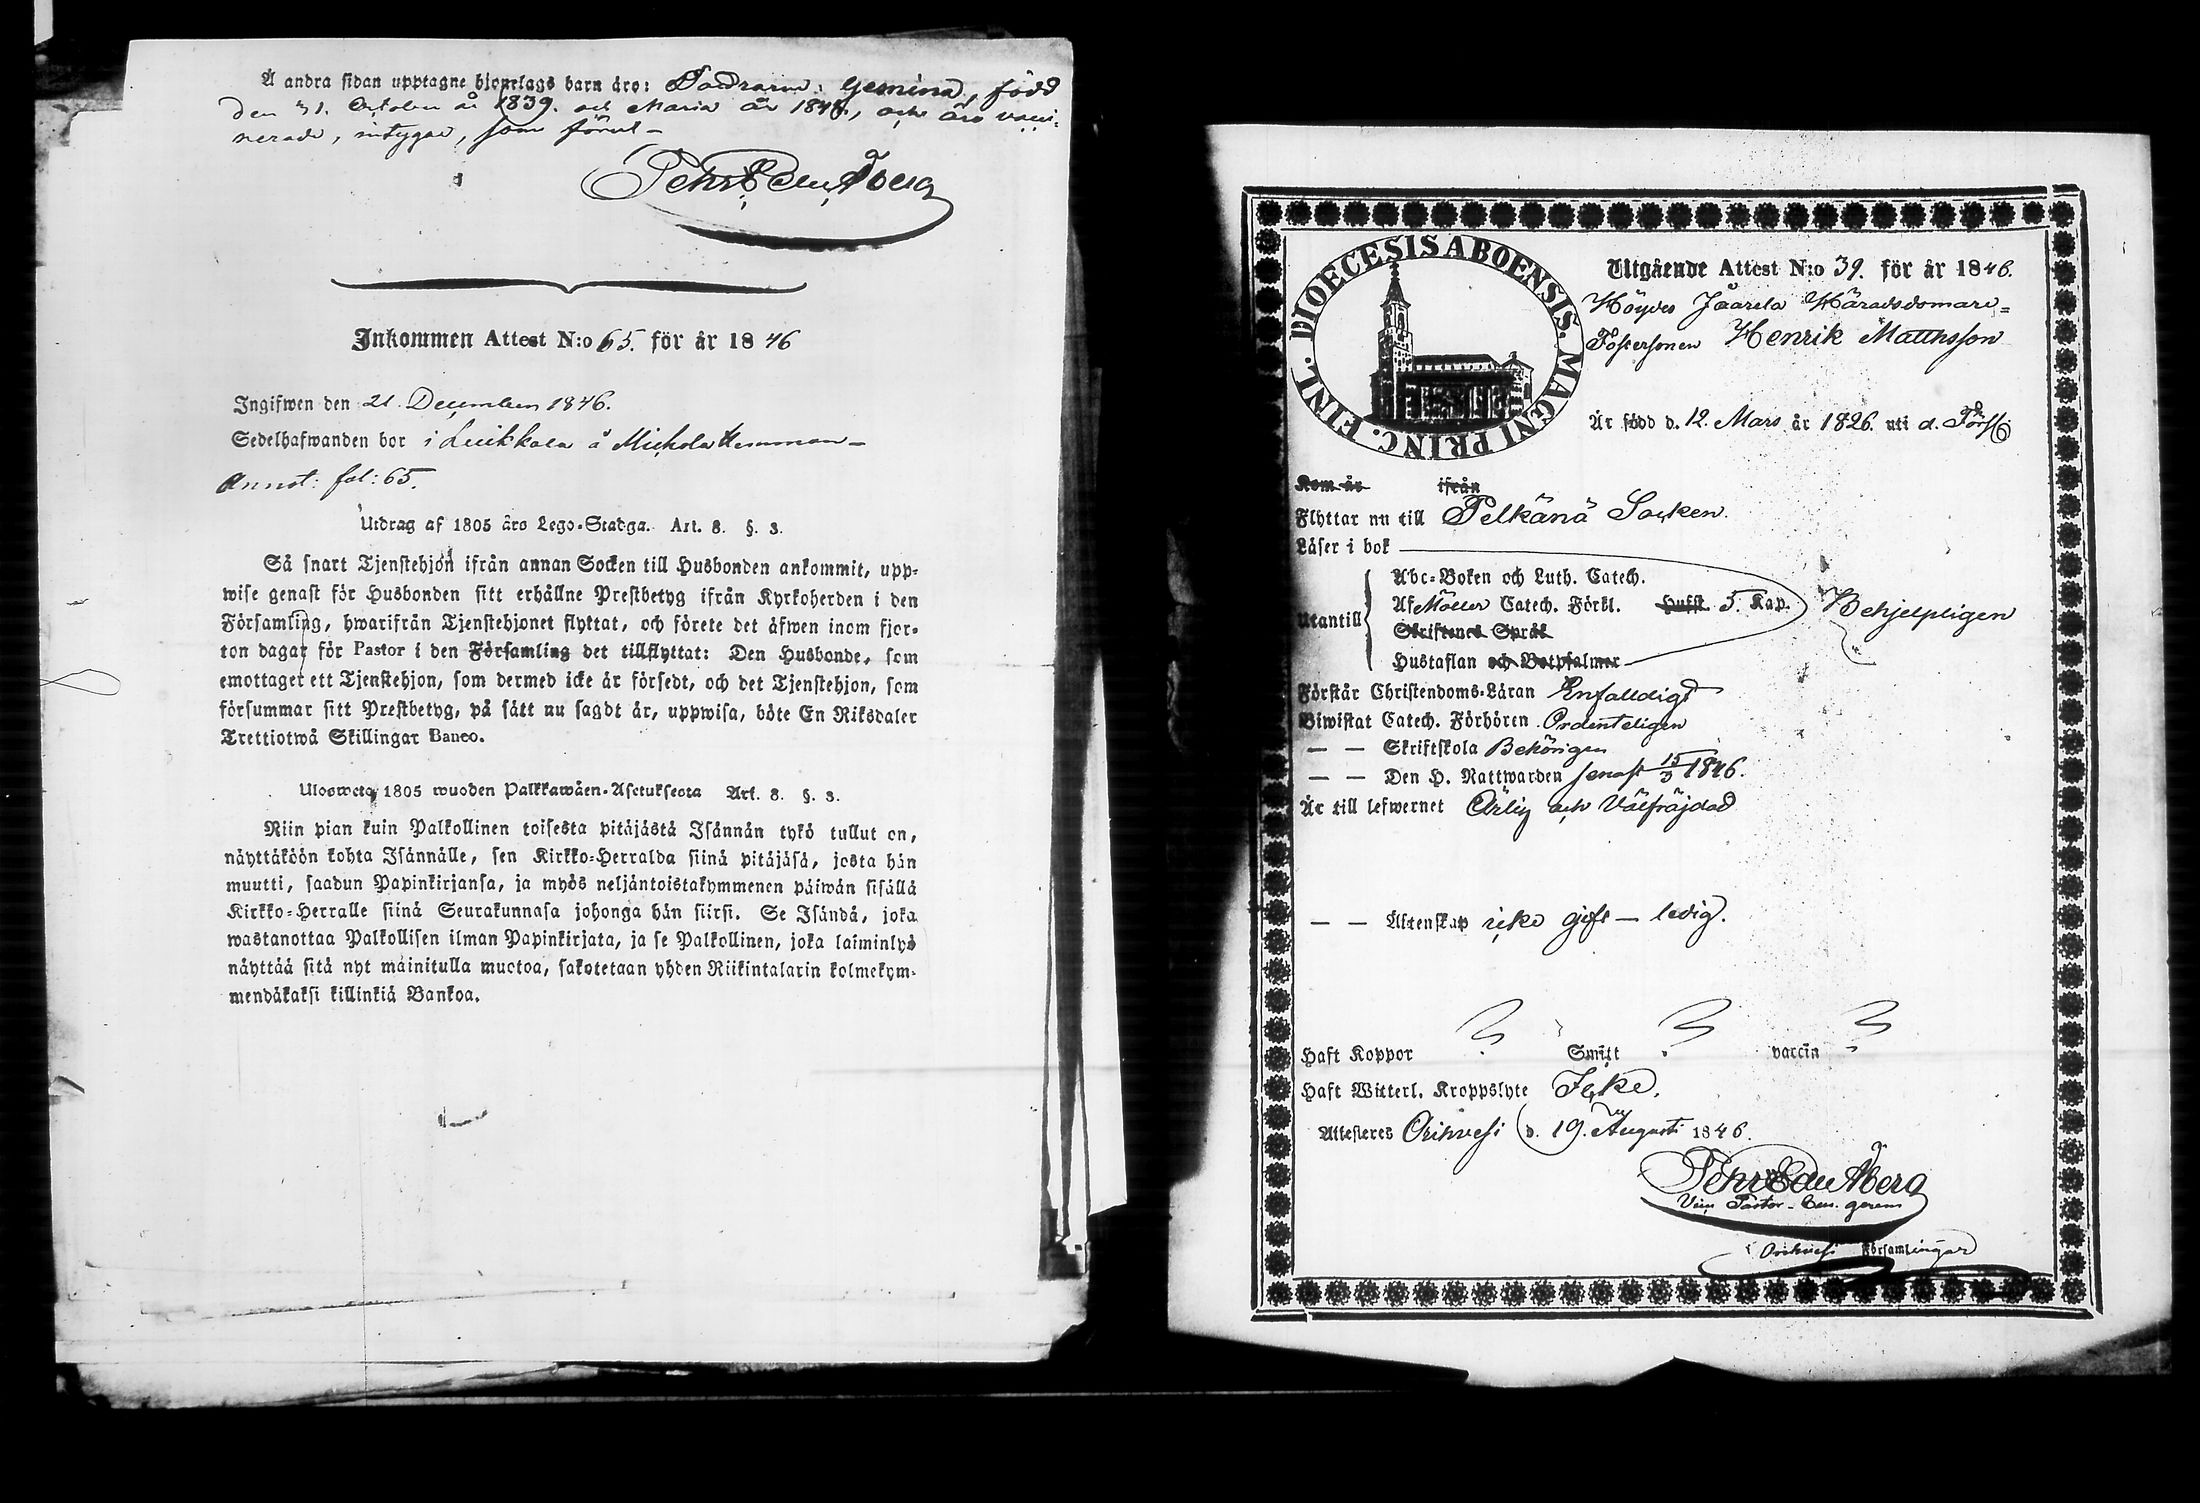 Å andra sidan upptagne hjonelags barn äro: Gemina, född
den 31. October år 1839. och Maria år 184, och äro vacci-
nerade, intygar, som förut –
Pehr Edu Åberg
Inkommen Attest N:o 65. för år 1846
Ingifwen den 21. December 1846.
Sedelhafwanden bor i Luikkala å Mickola Hemman –
Annot: fol: 65.
Utdrag af 1805 års Lego-Stadga. Art. 8. §. 3.
Så snart Tjenstehjon ifrån annan Socken till Husbonden ankommit, upp-
wise genast för Husbonden sitt erhållne Prestbetyg ifrån Kyrkoherden i den
Församling, hwarifrån Tjenstehjonet flyttat, och förete det äfwen inom fjor-
ton dagar för Pastor i den Församling det tillflyttat: Den Husbonde, som
emottager ett Tjenstehjon, som dermed icke är försedt, och det Tjenstehjon, som
försummar sitt Prestbetyg, på sätt nu sagdt är, uppwisa, böte En Riksdaler
Trettiotwå Skillingar Banco.
Ulosweto 1805 wuoden Palkkawäen-Asetuksesta Art. 8. §. 3.
Niin pian kuin Palkollinen toisesta pitäjästä Isännän tykö tullut on,
näyttäköön kohta Isännälle, sen Kirkko-Herralda siinä pitäjäsä, josta hän
muutti, saadun Papinkirjansa, ja myös neljäntoistakymmenen päiwän sisällä
Kirkko-Herralle siinä Seurakunnasa johonga hän siirsi. Se Isändä, joka
wastanottaa Palkollisen ilman Papinkirjata, ja se Palkollinen, joka laiminlyö
näyttää sitä nyt mainitulla muotoa, sakotetaan yhden Riikintalarin kolmekym-
mendäkaksi killinkiä Bankoa.
DIOECESIS ABOENSIS. MAGNI PRINC. FINL.
Utgående Attest N:o 39. för år 1846.
Höydes Jaarela Häradsdomare-
Fostersonen Henrik Matthsson
Är född d. 12. Mars år 1826. uti d. Förs:
Kom år ifrån
Flyttar nu till Pelkänä Socken.
Läser i bok
Utantill
Abc-Boken och Luth. Catech.
Af Möller Catech. Förkl. Hufst. 5. Kap.
Skriftenes Språk
Hustaflan och Botpsalmer
Behjelpligen
Förstår Christendoms-Läran Enfalldigt
Biwistat Catech. Förhören Ordenteligen
— — Skriftskola Behörigen
— — Den H. Nattwarden senast 15/3 1846.
Är till lefwernet Ärlig och Välfräjdad
— — Äktenskap icke gift – ledig.
Haft Koppor ? Smitt ? vaccin ?
Haft Witterl. Kroppslyte Icke.
Attesteres Orihvesi d. 19. Augusti 1846.
Pehr Edu Åberg
Vice Pastor
i Orihvesi Församlingar